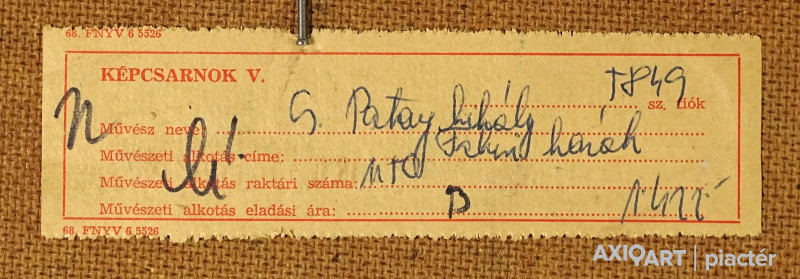 68. FNYV 6 5526
KÉPCSARNOK V.
T849
sz. fiók
Művész neve: G. Patay Mihály
Művészeti alkotás címe: házak
Művészeti alkotás raktári száma:
Művészeti alkotás eladási ára: B
68. FNYV 6 5526
AXIOART | piactér